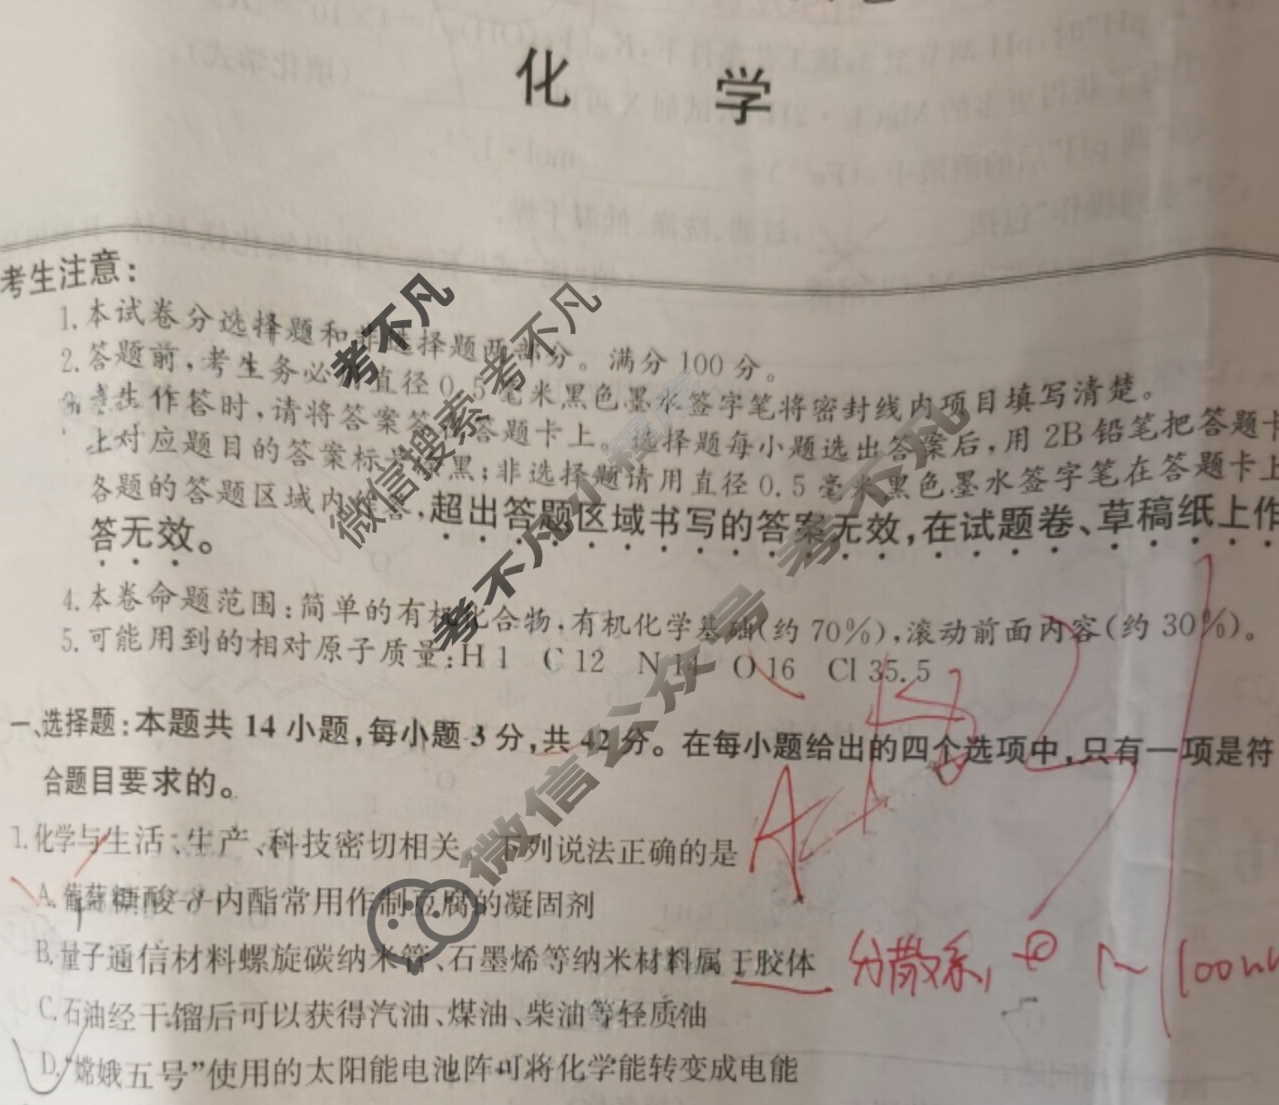 化 学
考生注意:
1.本试卷分选择题和非选择题两部分。满分100分。
2.答题前,考生务必 直径0.5毫米黑色墨水签字笔将密封线内项目填写清楚。
3.考生作答时,请将答案答 答题卡上。选择题每小题选出答案后,用2B铅笔把答题卡
上对应题目的答案标 黑;非选择题请用直径0.5毫米黑色墨水签字笔在答题卡上
各题的答题区域内 答,超出答题区域书写的答案无效,在试题卷、草稿纸上作
答无效。
4.本卷命题范围:简单的有机化合物,有机化学基础(约70%),滚动前面内容(约30%)。
5.可能用到的相对原子质量:H 1 C 12 N 14 O 16 Cl 35.5
一、选择题:本题共14小题,每小题3分,共42分。在每小题给出的四个选项中,只有一项是符
合题目要求的。
1.化学与生活、生产、科技密切相关。下列说法正确的是
A
A.葡萄糖酸-δ-内酯常用作制豆腐的凝固剂
B.量子通信材料螺旋碳纳米管、石墨烯等纳米材料属于胶体
分散系,
C.石油经干馏后可以获得汽油、煤油、柴油等轻质油
D.“嫦娥五号”使用的太阳能电池阵可将化学能转变成电能
考不凡
微信搜索 考不凡
考不凡小程序
微信公众号 考不凡